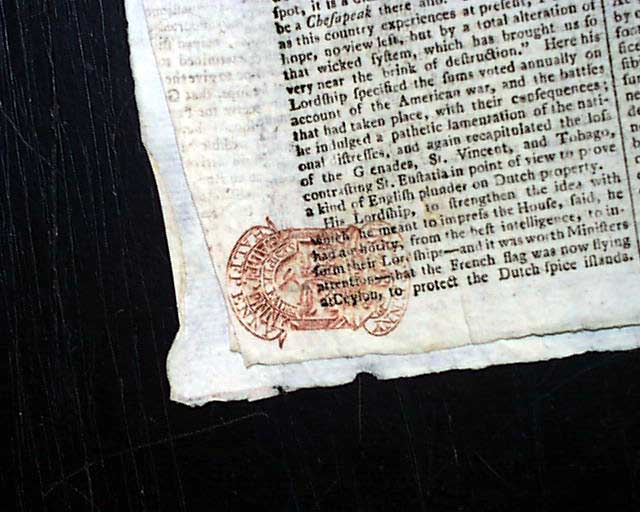 spot, it is a
be a Cheſapeak there and
as this country experiences at preſent,
hope, no view left, but by a total alteration of
that wicked ſyſtem, which has brought us ſo
very near the brink of deſtruction." Here his
Lordſhip ſpecified the ſums voted annually on
account of the American war, and the battles
that had taken place, with their conſequences;
he indulged a pathetic lamentation of the nati-
onal diſtreſſes, and again recapitulated the loſs
of the Grenades, St. Vincent, and Tobago,
contraſting St. Euſtatia in point of view to prove
a kind of Engliſh plunder on Dutch property.
His Lordſhip, to ſtrengthen the idea with
which he meant to impreſs the Houſe, ſaid, he
had authority, from the beſt intelligence, to in-
form their Lordſhips—and it was worth Miniſters
attention—that the French flag was now flying
at Ceylon, to protect the Dutch ſpice iſlands.